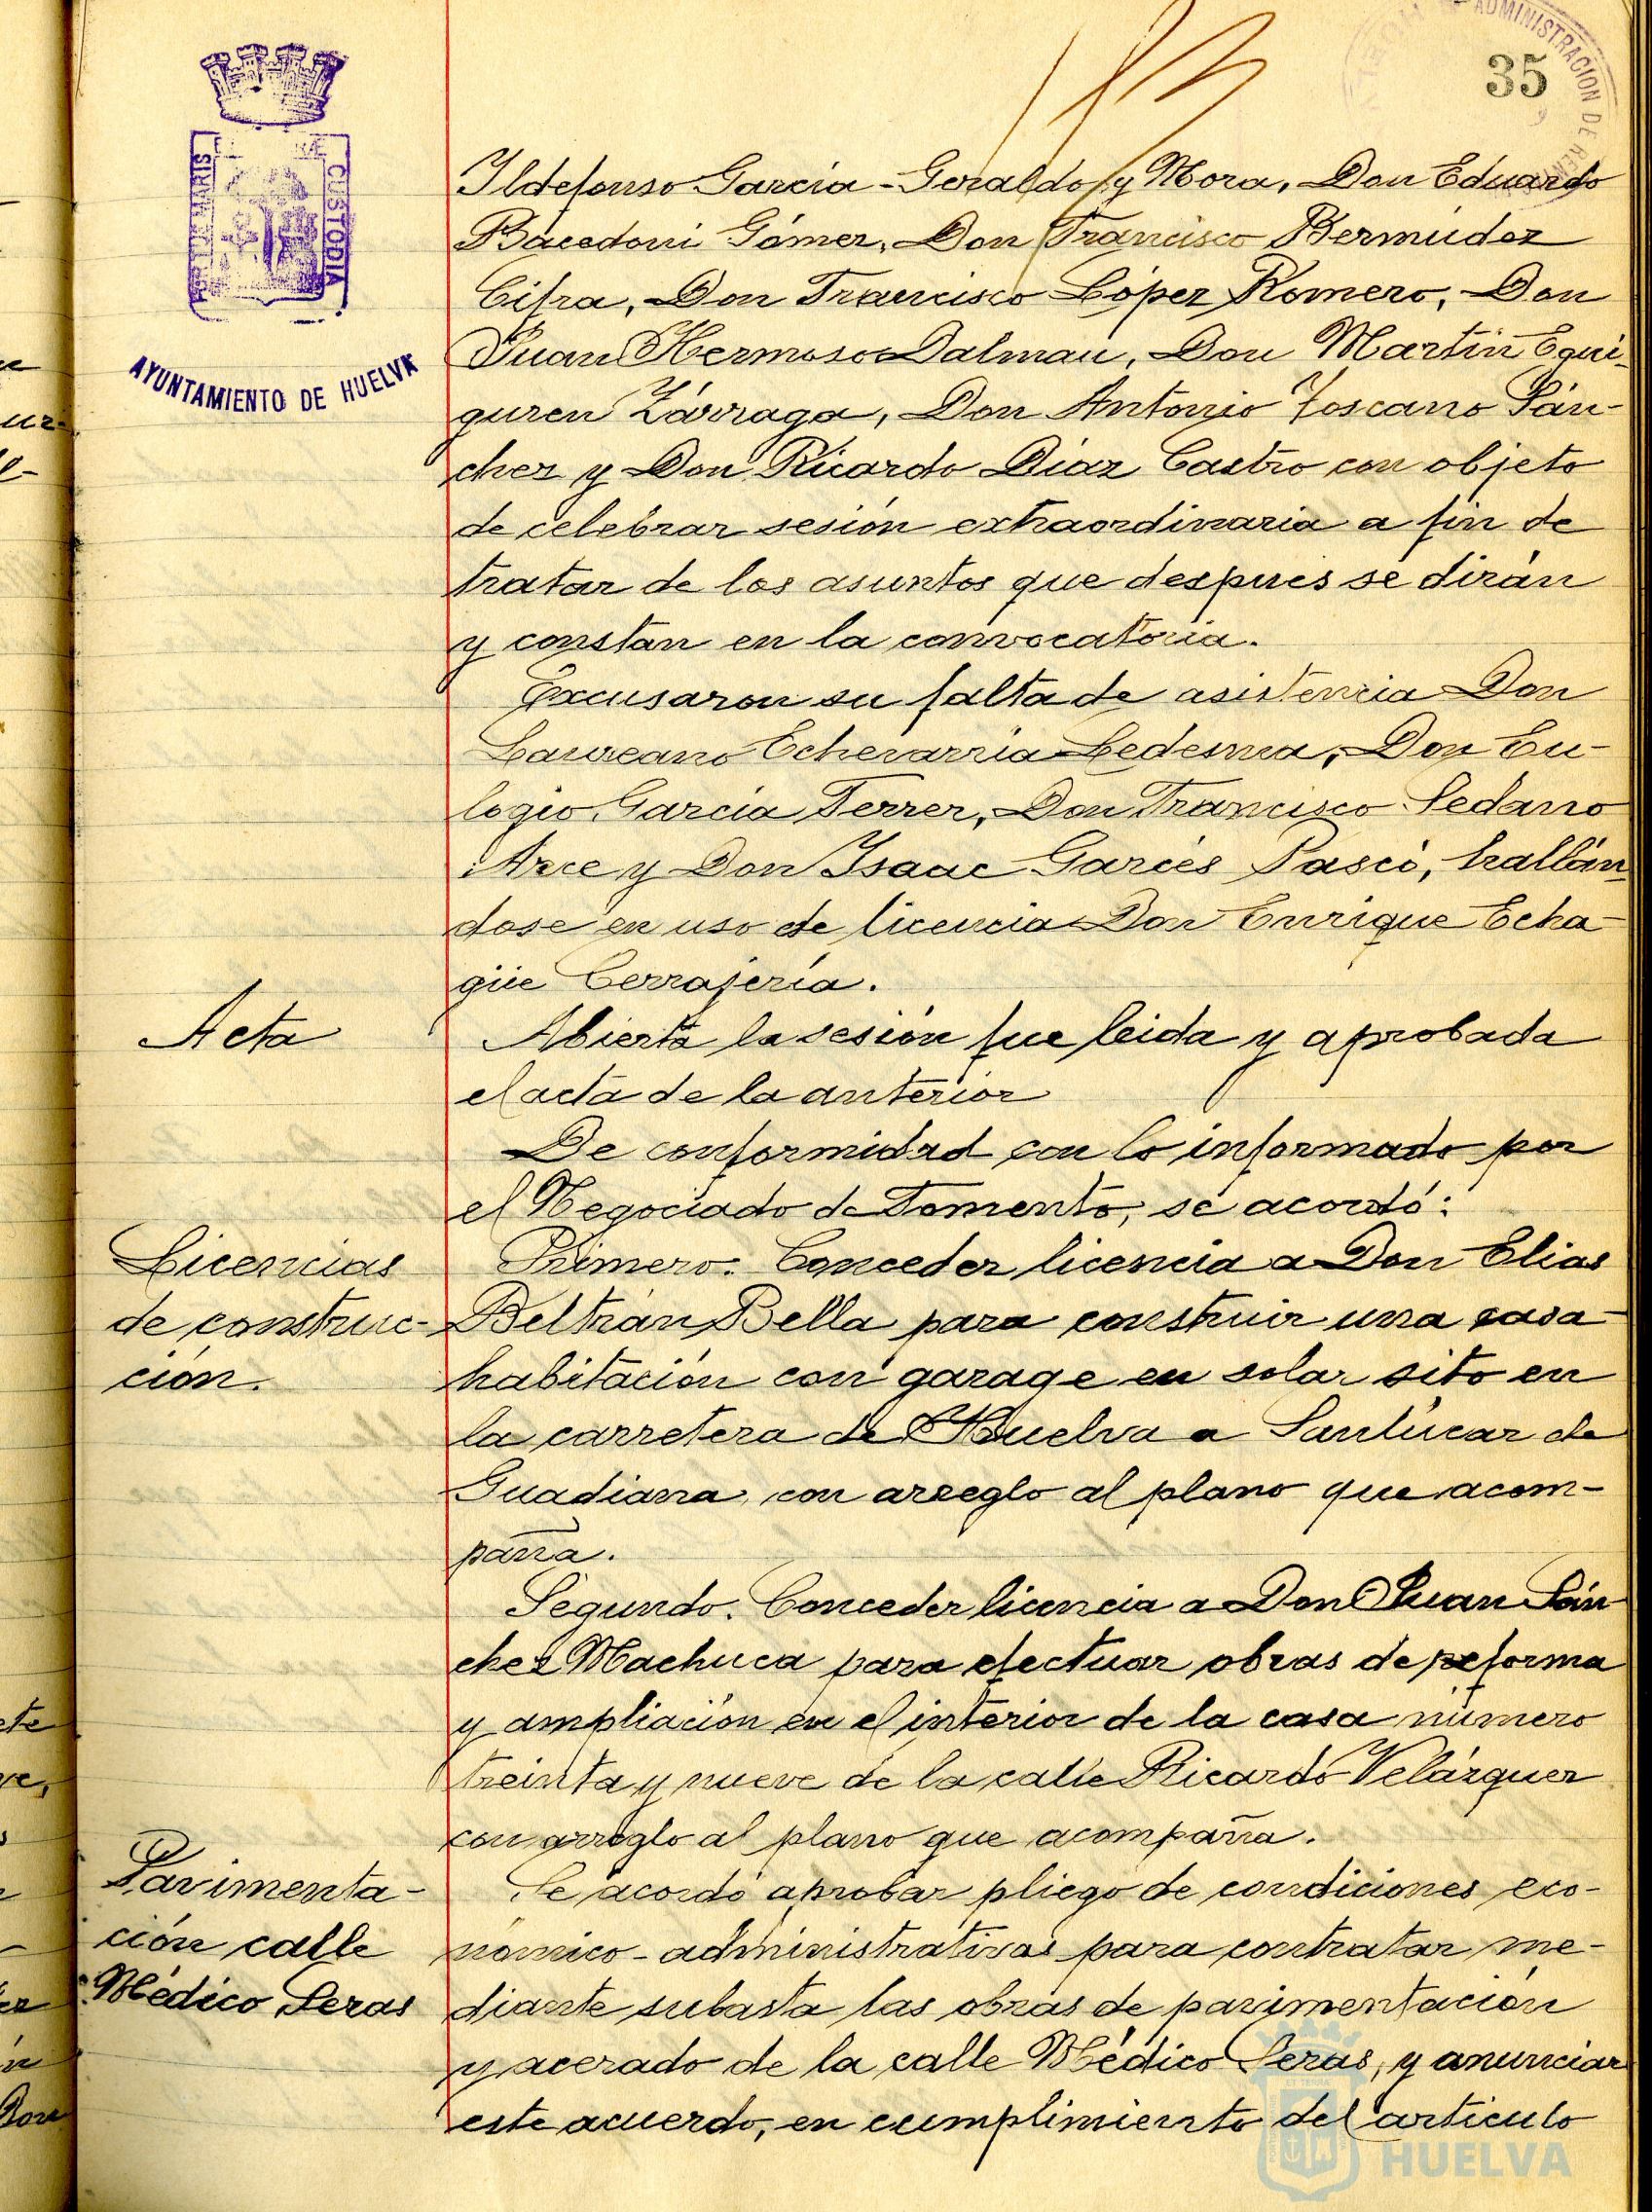 35
ADMINISTRACION DE REN
PORTUS MARIS
CUSTODIA
AYUNTAMIENTO DE HUELVA
Ildefonso García-Geraldo y Mora, Don Eduardo
Bacedoni Gómez, Don Francisco Bermúdez
Cifra, Don Francisco López Romero, Don
Juan Hermoso Dalmau, Don Martín Egui-
guren Zárraga, Don Antonio Toscano Sán-
chez y Don Ricardo Díaz Castro con objeto
de celebrar sesión extraordinaria a fin de
tratar de los asuntos que después se dirán
y constan en la convocatoria.
Excusaron su falta de asistencia Don
Laureano Echevarría Ledesma, Don Eu-
logio García Ferrer, Don Francisco Sedano
Arce y Don Isaac Garcés Pascó, hallán-
dose en uso de licencia Don Enrique Echa-
güe Cerrajería.
Acta
Abierta la sesión fue leida y aprobada
el acta de la anterior
De conformidad con lo informado por
el Negociado de Fomento, se acordó:
Licencias
de construc-
ción.
Primero. Conceder licencia a Don Elias
Beltrán Bella para construir una casa-
habitación con garage en solar sito en
la carretera de Huelva a Sanlúcar de
Guadiana, con arreglo al plano que acom-
paña.
Segundo. Conceder licencia a Don Juan Sán-
chez Machuca para efectuar obras de reforma
y ampliación en el interior de la casa número
treinta y nueve de la calle Ricardo Velázquez
con arreglo al plano que acompaña.
Pavimenta-
ción calle
Médico Seras
Se acordó aprobar pliego de condiciones eco-
nómico-administrativas para contratar me-
diante subasta las obras de pavimentación
y acerado de la calle Médico Seras, y anunciar
este acuerdo, en cumplimiento del artículo
HUELVA